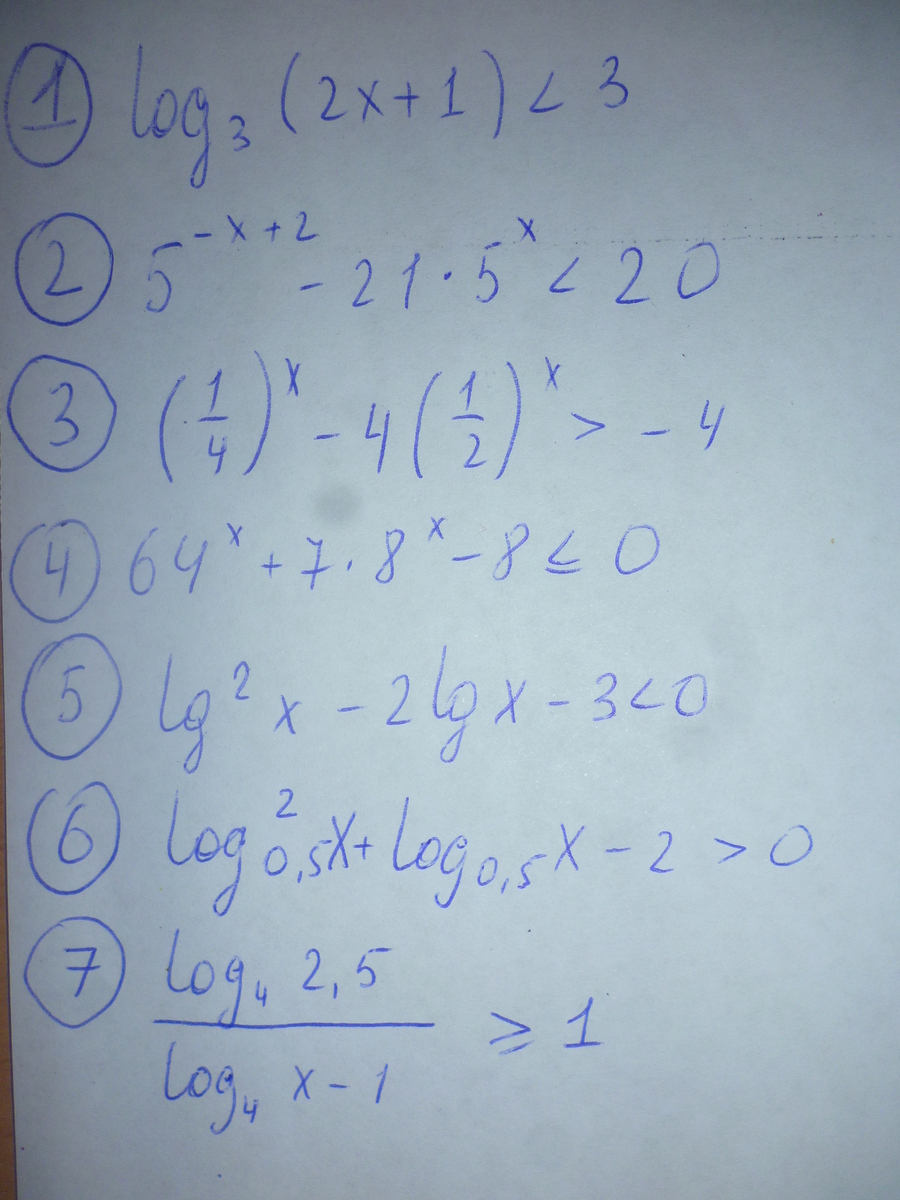 ① log₃ (2x+1) < 3
② 5^(-x+2) - 21 · 5^x < 20
③ (1/4)^x - 4(1/2)^x > -4
④ 64^x + 7·8^x - 8 ≤ 0
⑤ lg² x - 2lg x - 3<0
⑥ log²₀,₅x + log₀,₅x - 2 > 0
⑦ (log₄ 2,5)/(log₄ x - 1) ≥ 1